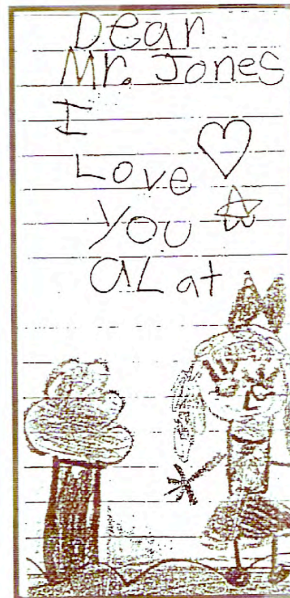 Dear
Mr. Jones
I
Love
You
aLat